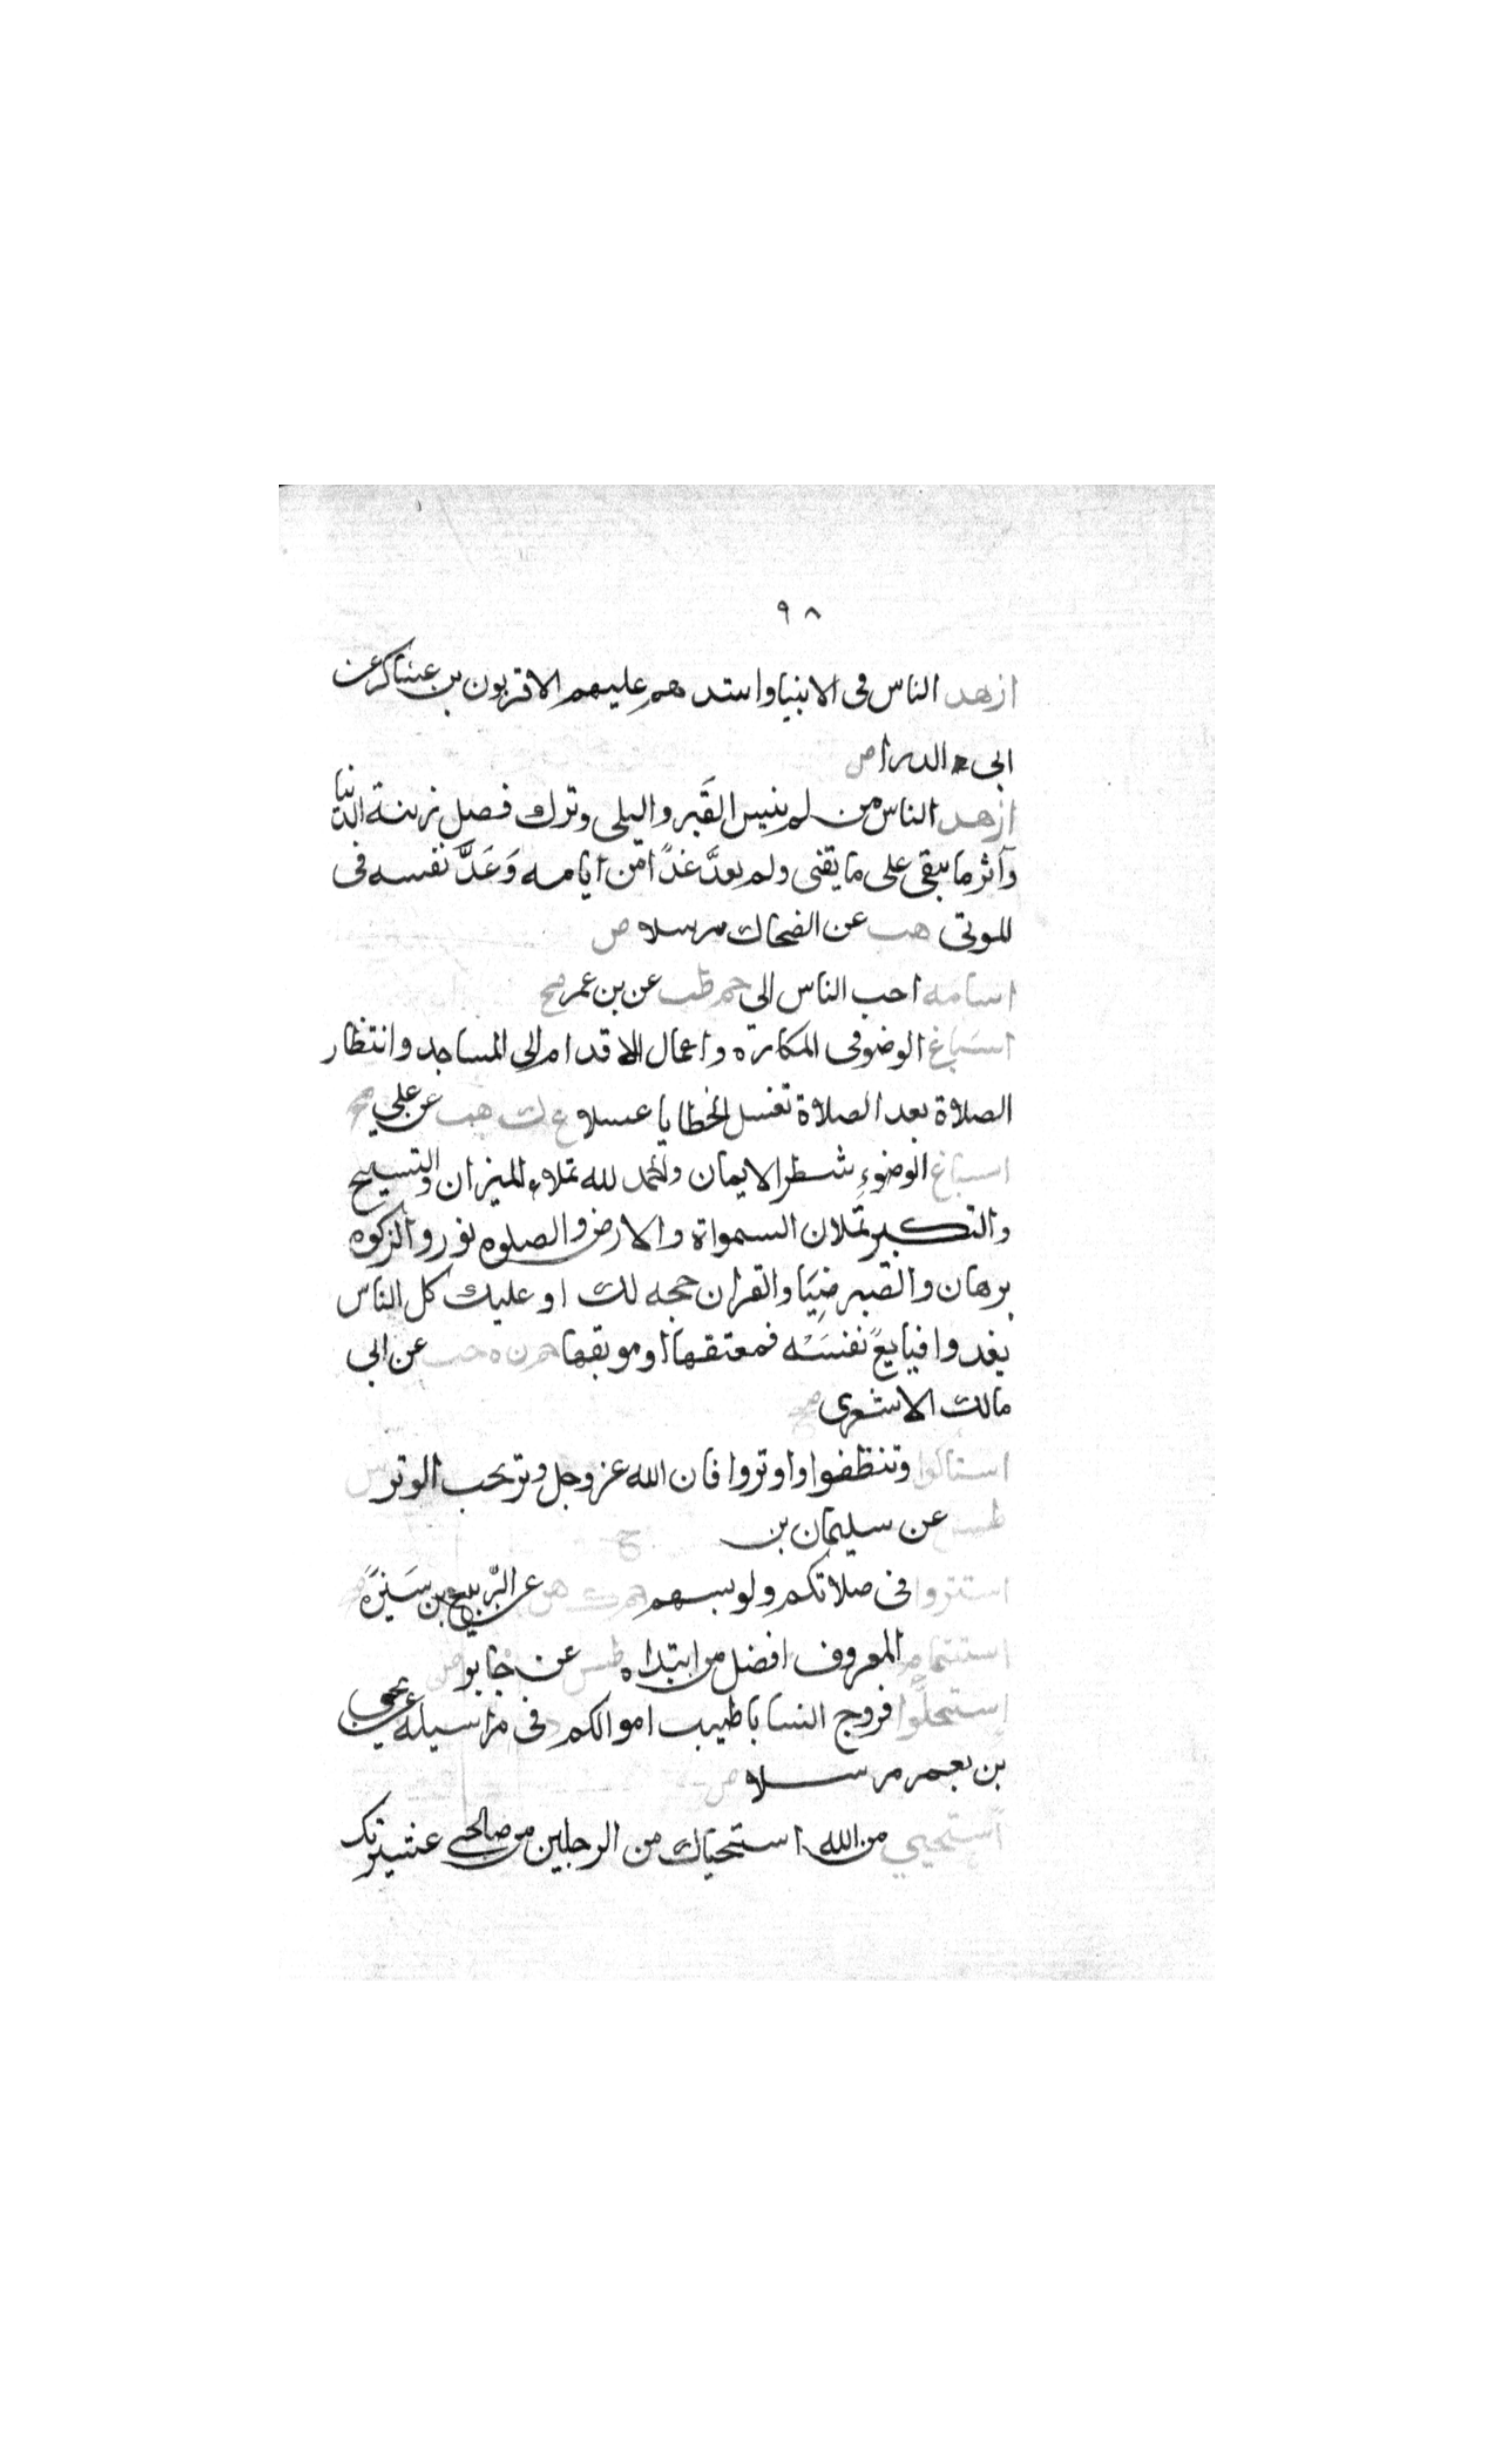 ٩٨
ازهد الناس فى الانبيا واشدهم عليهم الاقربون بن عساكر عن
ابى الدردا ض
ازهد الناس من لم ينس القبر والبلى وترك فصل زينة الدنيا
وآثر ما يبقى على ما يفنى ولم يعدَّ غدًا من ايامه وَعَدَّ نفسه فى
الموتى هب عن الضحاك مرسلا ض
اسامه احب الناس الى حم طب عن بن عمر صح
اسباغ الوضو فى المكاره واعمال الاقدام الى المساجد وانتظار
الصلاة بعد الصلاة تغسل الخطايا غسلا ع ك هب عن علي صح
اسباغ الوضوء شطر الايمان والحمد لله تملاء الميزان والتسبيح
والتكبير تملان السمواة والارض والصلوه نور والزكوه
برهان والصبر ضِيَا والقران حجه لك او عليك كل الناس
يغدوا فبايع نفسَه فمعتقها او موبقها حم ن ه حب عن ابى
مالك الاشعرى صح
استاكوا وتنظفوا واوتروا فان الله عز وجل وتر يحب الوتر ش
طس عن سليمان بن ح
استتروا فى صلاتكم ولو بسهم حم ك هق عن الربيع بن سَبْرَة صح
استتمام المعروف افضل من ابتداه طس عن جابر ض
استحلّوا فروج النسا باطيب اموالكم د فى مراسيله عن يحيى
بن يعمر مرسلا ض
استحيي من الله استحياك من الرجلين من صالحى عشيرتك